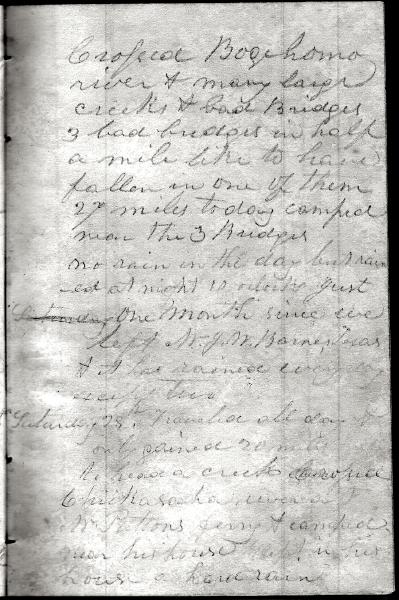 Crossed Bogehomo
river & many large
creeks & bad Bridges
3 bad bridges in half
a mile like to have
fallen in one of them
27 miles today camped
near the 3 Bridges
no rain in the day but rain
ed at night 10 oclock Just
Saturday one month since we
left W. Barnes Texas
& it has rained every day
except two
Saturday 28th Traveled all day &
only gained 20 miles
to head a creek crossed
Chickasaha
Pattons ferry & camped
near his house in his
house a hard rain